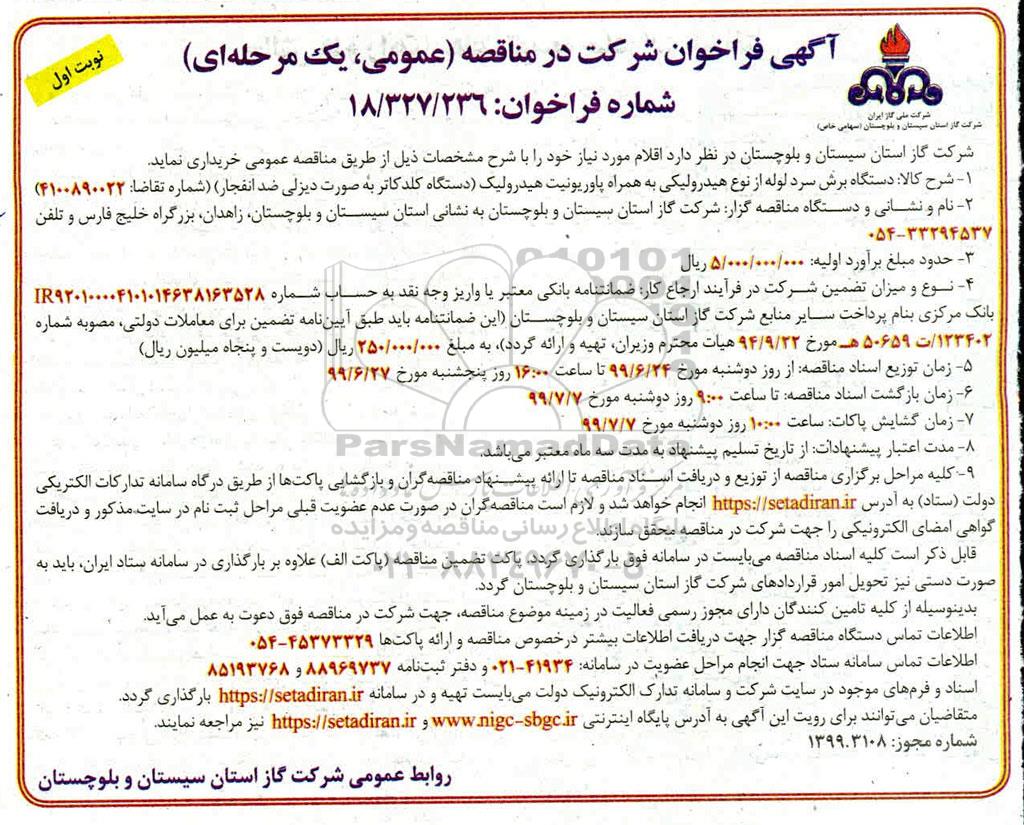 آگهی فراخوان شرکت در مناقصه (عمومی، یک مرحله‌ای)
شماره فراخوان: ۱۸/۳۲۷/۲۳۶
نوبت اول
شرکت ملی گاز ایران
شرکت گاز استان سیستان و بلوچستان (سهامی خاص)
شرکت گاز استان سیستان و بلوچستان در نظر دارد اقلام مورد نیاز خود را با شرح مشخصات ذیل از طریق مناقصه عمومی خریداری نماید.
۱- شرح کالا: دستگاه برش سرد لوله از نوع هیدرولیکی به همراه پاوریونیت هیدرولیک (دستگاه کلدکاتر به صورت دیزلی ضد انفجار) (شماره تقاضا: ۴۱۰۰۸۹۰۰۲۲)
۲- نام و نشانی و دستگاه مناقصه گزار: شرکت گاز استان سیستان و بلوچستان به نشانی استان سیستان و بلوچستان، زاهدان، بزرگراه خلیج فارس و تلفن
۰۵۴-۳۳۲۹۴۵۳۷
۳- حدود مبلغ برآورد اولیه: ۵/۰۰۰/۰۰۰/۰۰۰ ریال
۴- نوع و میزان تضمین شرکت در فرآیند ارجاع کار: ضمانتنامه بانکی معتبر یا واریز وجه نقد به حساب شماره IR۹۲۰۱۰۰۰۰۴۱۰۱۰۱۴۶۳۸۱۶۳۵۲۸
بانک مرکزی بنام پرداخت سایر منابع شرکت گاز استان سیستان و بلوچستان (این ضمانتنامه باید طبق آیین‌نامه تضمین برای معاملات دولتی، مصوبه شماره
۱۲۳۴۰۲/ت ۵۰۶۵۹ هـ مورخ ۹۴/۹/۲۲ هیات محترم وزیران، تهیه و ارائه گردد)، به مبلغ ۲۵۰/۰۰۰/۰۰۰ ریال (دویست و پنجاه میلیون ریال)
۵- زمان توزیع اسناد مناقصه: از روز دوشنبه مورخ ۹۹/۶/۲۴ تا ساعت ۱۶:۰۰ روز پنجشنبه مورخ ۹۹/۶/۲۷
۶- زمان بازگشت اسناد مناقصه: تا ساعت ۹:۰۰ روز دوشنبه مورخ ۹۹/۷/۷
۷- زمان گشایش پاکات: ساعت ۱۰:۰۰ روز دوشنبه مورخ ۹۹/۷/۷
ParsNamadData
۸- مدت اعتبار پیشنهادات: از تاریخ تسلیم پیشنهاد به مدت سه ماه معتبر می‌باشد.
۹- کلیه مراحل برگزاری مناقصه از توزیع و دریافت اسناد مناقصه تا ارائه پیشنهاد مناقصه‌گران و بازگشایی پاکت‌ها از طریق درگاه سامانه تدارکات الکتریکی
دولت (ستاد) به آدرس https://setadiran.ir انجام خواهد شد و لازم است مناقصه‌گران در صورت عدم عضویت قبلی مراحل ثبت نام در سایت مذکور و دریافت
گواهی امضای الکترونیکی را جهت شرکت در مناقصه محقق سازند.
پایگاه اطلاع رسانی مناقصه و مزایده
قابل ذکر است کلیه اسناد مناقصه می‌بایست در سامانه فوق بارگذاری گردد. پاکت تضمین مناقصه (پاکت الف) علاوه بر بارگذاری در سامانه ستاد ایران، باید به
صورت دستی نیز تحویل امور قراردادهای شرکت گاز استان سیستان و بلوچستان گردد.
بدینوسیله از کلیه تامین کنندگان دارای مجوز رسمی فعالیت در زمینه موضوع مناقصه، جهت شرکت در مناقصه فوق دعوت به عمل می‌آید.
اطلاعات تماس دستگاه مناقصه گزار جهت دریافت اطلاعات بیشتر درخصوص مناقصه و ارائه پاکت‌ها ۴۵۳۷۳۳۲۹-۰۵۴
اطلاعات تماس سامانه ستاد جهت انجام مراحل عضویت در سامانه: ۴۱۹۳۴-۰۲۱ و دفتر ثبت‌نامه ۸۸۹۶۹۷۳۷ و ۸۵۱۹۳۷۶۸
اسناد و فرم‌های موجود در سایت شرکت و سامانه تدارک الکترونیک دولت می‌بایست تهیه و در سامانه https://setadiran.ir بارگذاری گردد.
متقاضیان می‌توانند برای رویت این آگهی به آدرس پایگاه اینترنتی www.nigc-sbgc.ir و https://setadiran.ir نیز مراجعه نمایند.
شماره مجوز: ۱۳۹۹.۳۱۰۸
روابط عمومی شرکت گاز استان سیستان و بلوچستان